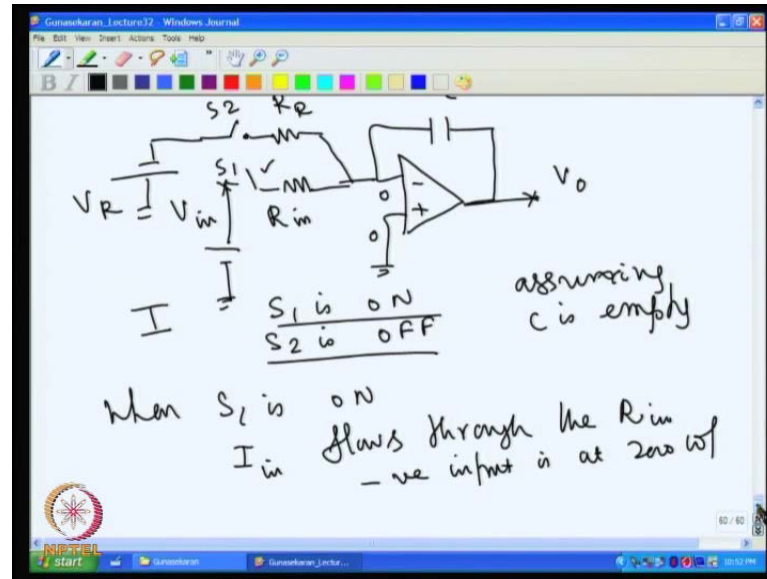 Gunasekaran_Lecture32 - Windows Journal
File Edit View Insert Actions Tools Help
B I
S2 R_R
S1
V_R V_in R_in
0
-
+
0
V_o
I
S1 is ON
S2 is OFF
assuming
C is empty
When S1 is ON
I_in flows through the R_in
-ve input is at zero
60 / 60
NPTEL
start Gunasekaran Gunasekaran_Lectur... 10:52 PM